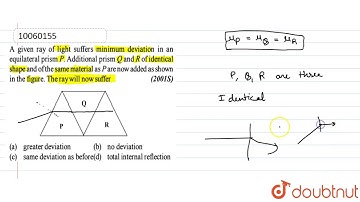 10060155
A given ray of light suffers minimum deviation in an
equilateral prism P. Additional prism Q and R of identical
shape and of the same material as P are now added as shown
in the figure. The ray will now suffer (2001S)
Q
P R
(a) greater deviation (b) no deviation
(c) same deviation as before(d) total internal reflection
μP = μQ = μR
P, Q, R are three
Identical
doubtnut